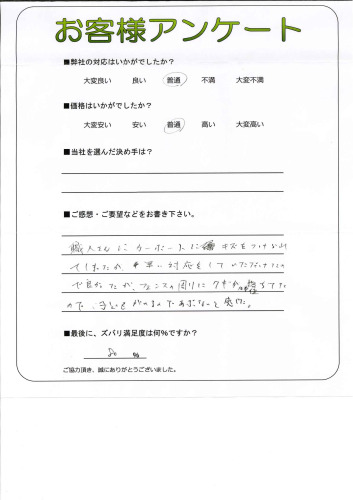 お客様アンケート
■弊社の対応はいかがでしたか?
大変良い 良い 普通 不満 大変不満
■価格はいかがでしたか?
大変安い 安い 普通 高い 大変高い
■当社を選んだ決め手は?
■ご感想・ご要望などをお書き下さい。
職人さんにカーポートにキズをつけられ
てしまったが、早い対応をしていただけたの
で良かったが、フェンスの周りにクギが落ちてた
ので、子どもがいるのであぶないと思った。
■最後に、ズバリ満足度は何%ですか?
%
ご協力頂き、誠にありがとうございました。